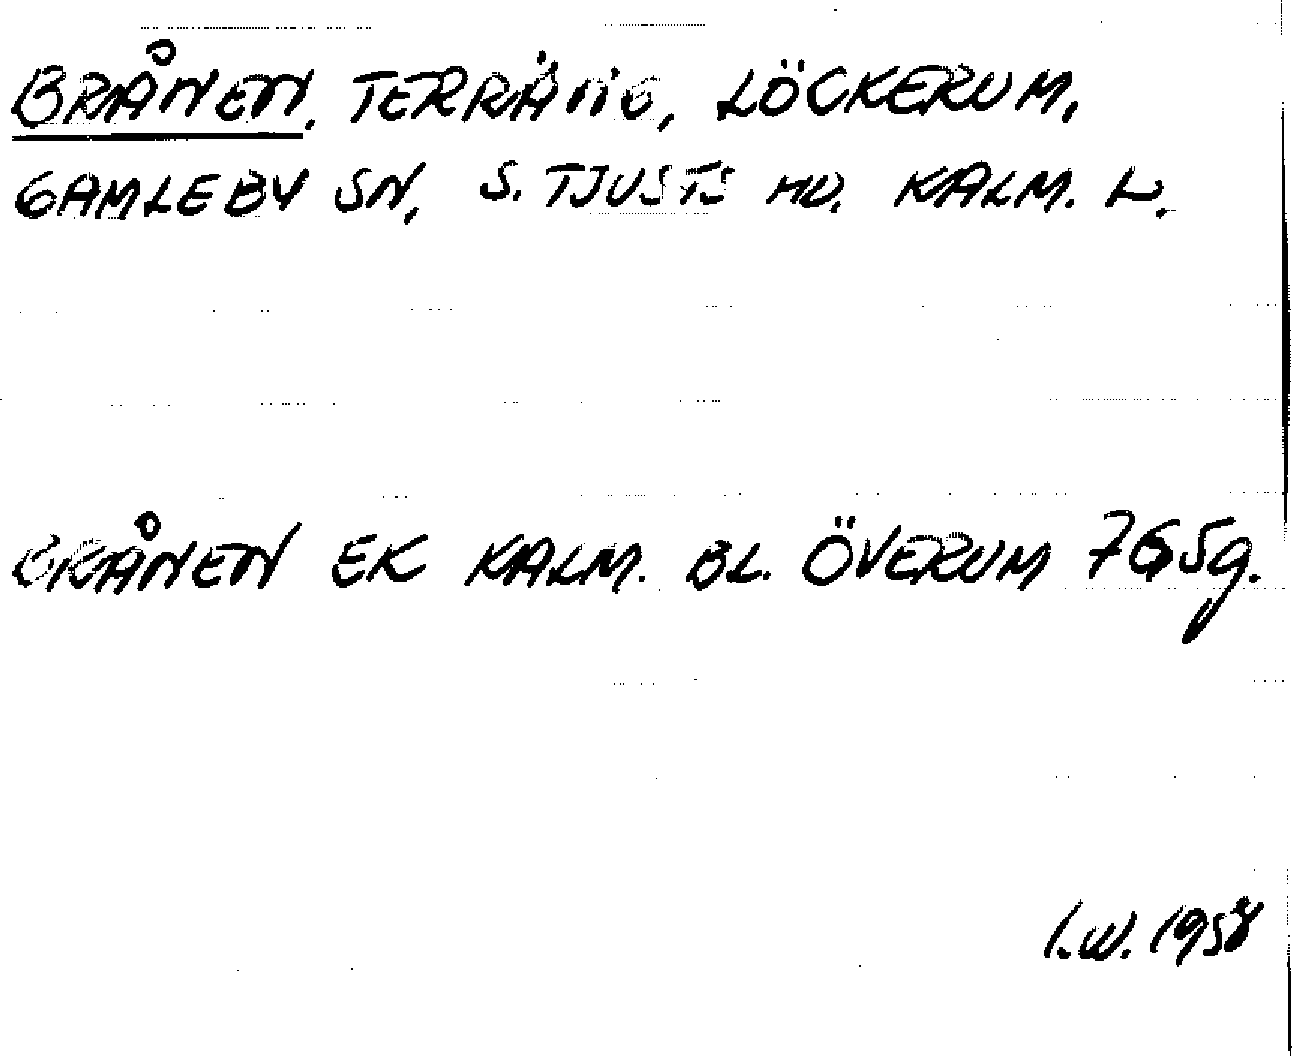 BRÅNEN, TERRÄNG, LÖCKERUM,
GAMLEBY SN, S. TJUSTS HD. KALM. L.
BRÅNEN EK KALM. BL. ÖVERUM 7G5g.
I.W. 1958